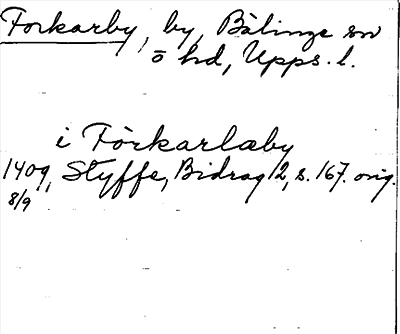 Forkarby, by, Bälinge sn
ö hd, Upps. l.
i Förkarlæby
1409, Styffe, Bidrag 2, s. 167. orig.
8/9